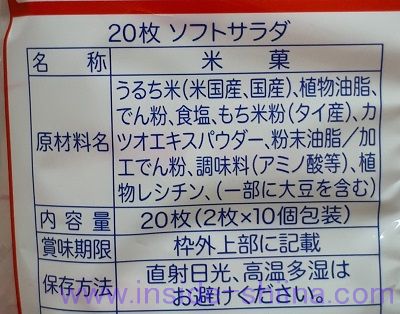 20枚 ソフトサラダ
名 称 米 菓
原材料名 うるち米(米国産、国産)、植物油脂、
でん粉、食塩、もち米粉(タイ産)、カ
ツオエキスパウダー、粉末油脂/加
工でん粉、調味料(アミノ酸等)、植
物レシチン、(一部に大豆を含む)
内 容 量 20枚(2枚×10個包装)
賞味期限 枠外上部に記載
保存方法 直射日光、高温多湿は
お避けください。